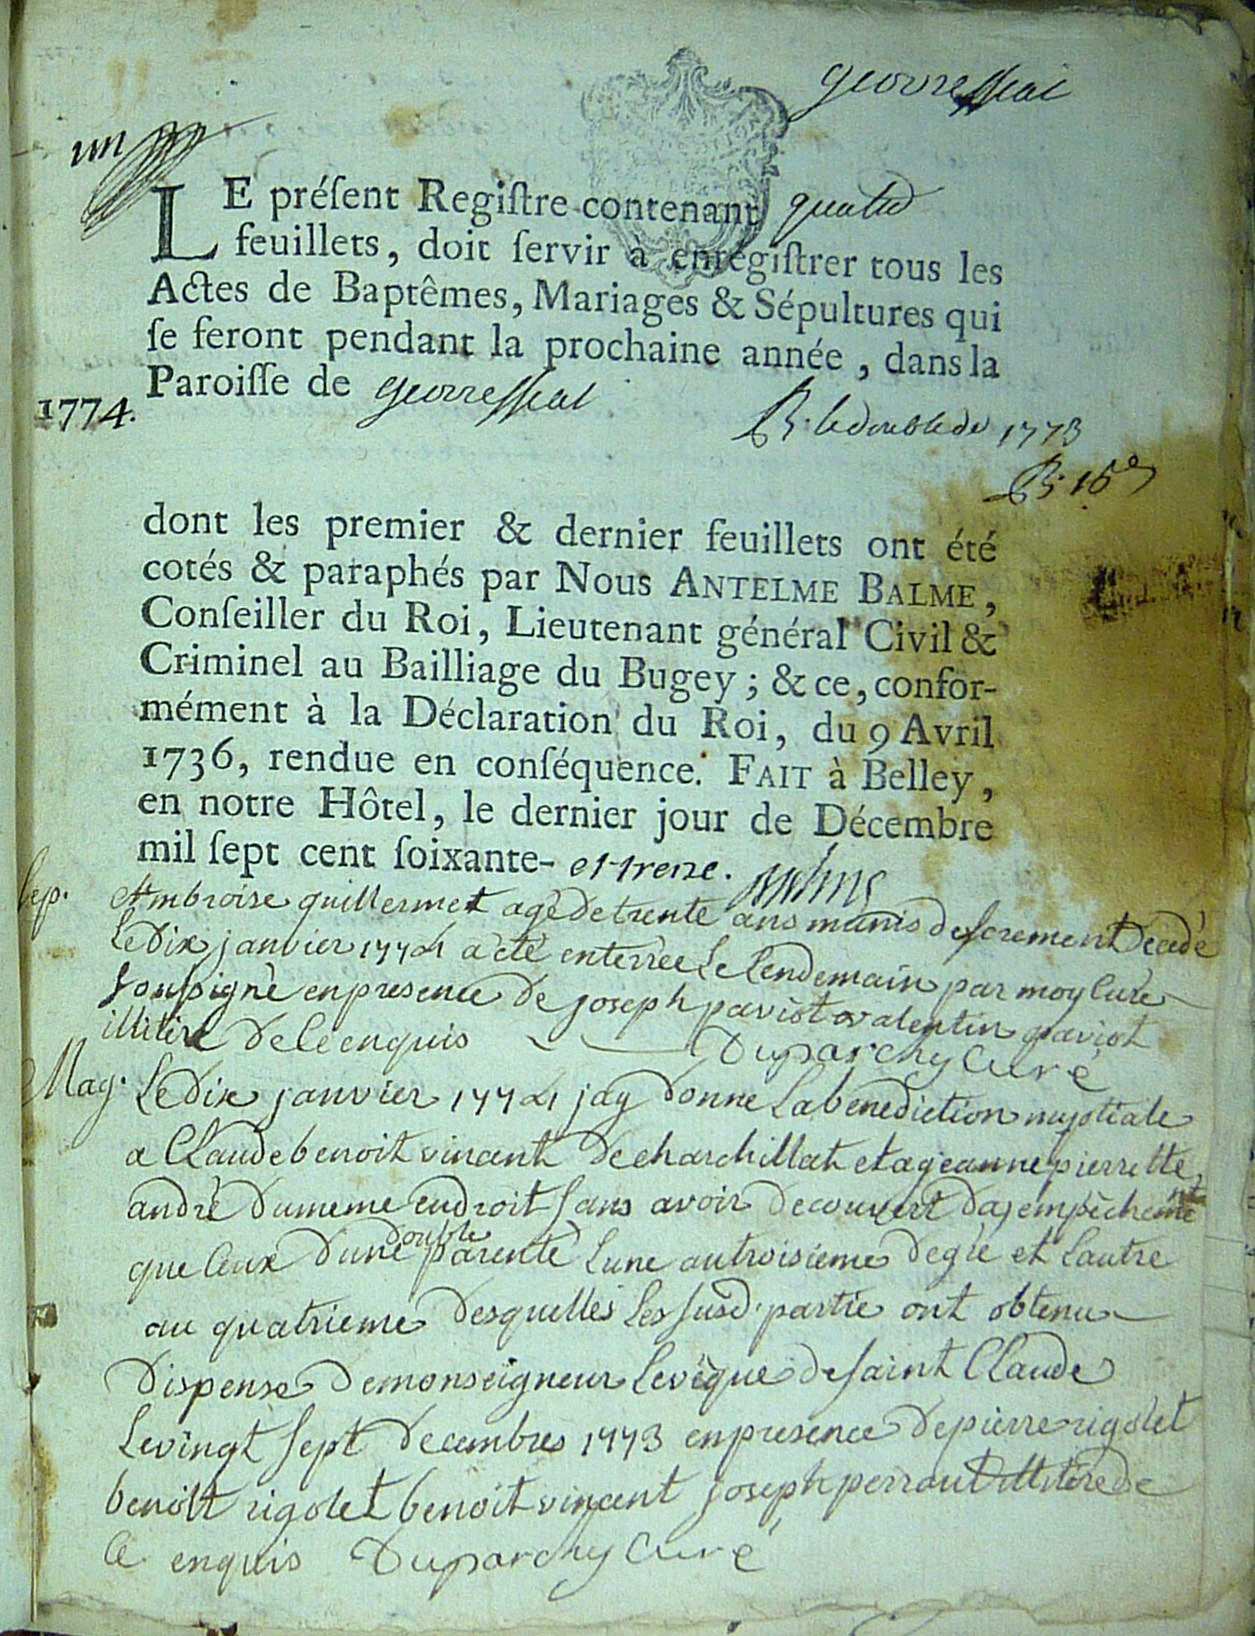 geovresseat
un
LE préſent Regiſtre contenant quatre
feuillets, doit ſervir à enregiſtrer tous les
Actes de Baptêmes, Mariages & Sépultures qui
ſe feront pendant la prochaine année, dans la
Paroiſſe de geovresseat
1774.
R. le double de 1773
R. 16
dont les premier & dernier feuillets ont été
cotés & paraphés par Nous ANTELME BALME,
Conſeiller du Roi, Lieutenant général Civil &
Criminel au Bailliage du Bugey ; & ce, confor-
mément à la Déclaration du Roi, du 9 Avril
1736, rendue en conſéquence. FAIT à Belley,
en notre Hôtel, le dernier jour de Décembre
mil ſept cent ſoixante- et treze.
Sep. Ambroise guillermet agè de trente ans munis des screment Decedè
Le Dix janvier 1774 a étè enterrèe Le Lendemain par moy Curè
soussignè en presence De joseph paviot valentin paviot
illitire De ce enquis Duparchy Curé
Mag. Le Dix janvier 1774 jay Donne La benediction nuptiale
a Claude benoit vincent De charchillat et a jeanne pierrette
andrè Du meme endroit sans avoir Decouvert Dajempèchement
que Ceux Dune double parentè Lune au troisieme Degre et Lautre
au quatrieme Desquelles Les susd. partie ont obtenu
Dispense De monseigneur Levèque De saint Claude
Le vingt sept Decembres 1773 en presence De pierre rigolet
benoit rigolet benoit vincent joseph perraut illitire de
Ce enquis Duparchy Curé